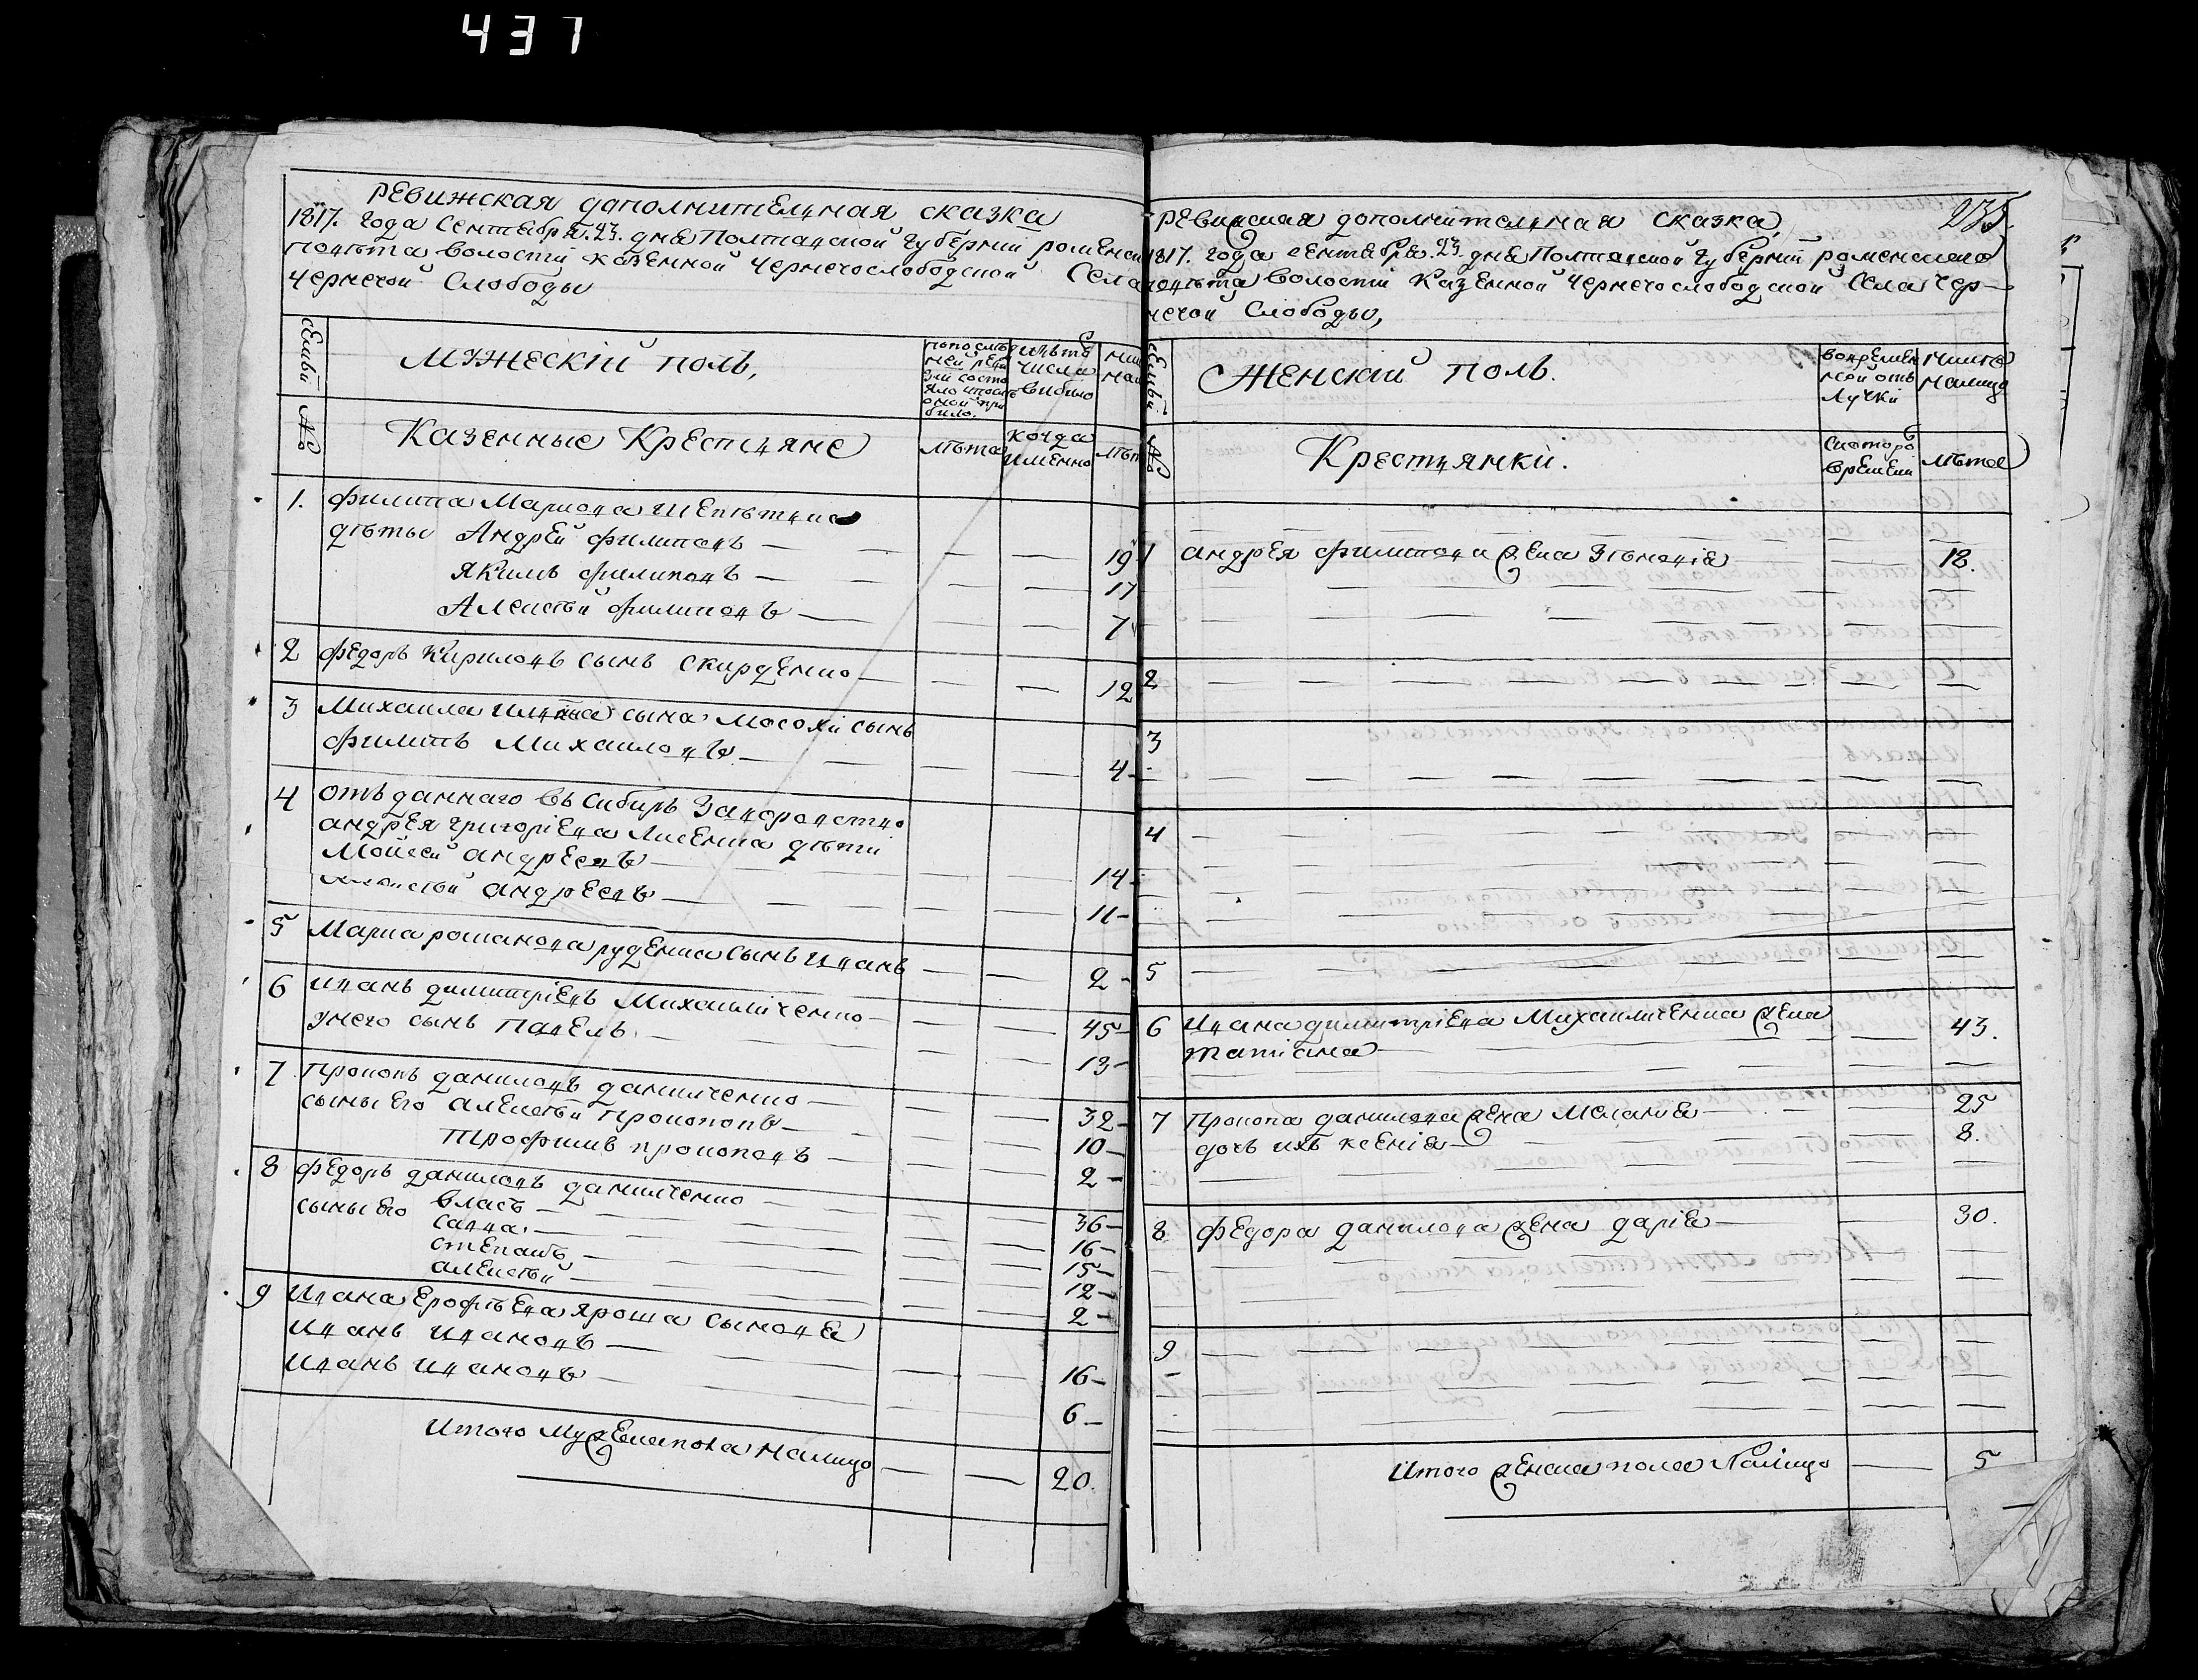 437
Ревижская дополнительная сказка
1817. года Сентебря .23. дня Полтавской Губерній роменска
повѣта волости казенной Чернечослободской Села
Чернечой Слободы
семьи
Мужескій поль,
По последней ревизіи состояло и после оной прибило.
изъ тѣ числа вибило
№
Казенные Крестьяне
лѣта
когда именно
лѣт
1. Филипа Маркова Шепѣтька
дѣты Андрей Филиповъ — — — — 19
Якимъ Филиповъ — — — — 17
Алексѣй Филиповъ — — — 7
2 Федоръ Кириловъ сынъ Скирденко — — — 12
3 Михаила Ильина сына Мосохи сынъ
Филипъ Михаиловъ — — — 4
4 Отъ даннаго въ Сибиръ За воровство
андрея Григоріева Лисенка дѣти
Мойсей андреевъ — — — 14
андреевъ — — — — 11
5 Марка романова руденка сынъ Иванъ — — 2
6 Иванъ димитріевъ Михаиличенко — — — 45
унего сынъ Павелъ — — — 13
7 Прокопъ даниловъ даниличенко — — — 32
сыны его алексѣй Прокоповъ — — — 10
Трофимъ прокоповъ — — — 2
8 Федоръ даниловъ даниличенко — — — 36
сыны его власъ — — — 16
савва — — — 15
степанъ — — — 12
алексѣй — — — 2
9 Ивана Ерофѣева яроша сыновя
Иванъ Ивановъ — — — 16
Иванъ Ивановъ — — — 6
Итого Мужеска пола налицо — — 20.
Ревижская дополнительная сказка,
235.
1817. года сентебря .23. дня Полтавской Губерній роменскаго
повѣта волости Казенной Чернечослободской Села Чер–
нечой Слободы,
семьи
Женскій поль.
вовремен ной отъ лучки
Ныне налицо
№
Крестьянки.
Скоторо времени
лѣта
1 андрея филипова жена Зѣновія — 18.
2 — — —
3
— — —
4 — — —
5 — — —
6 Ивана димитріева Михаиличенка жена — 43.
Татіана — — —
7 Прокопа данилова жена Меланія — — 25
дочъ ихъ ксенія — — 8.
8 Федора данилова жена дарія — — 30.
9 — — —
Итого женска пола Налицо — 5